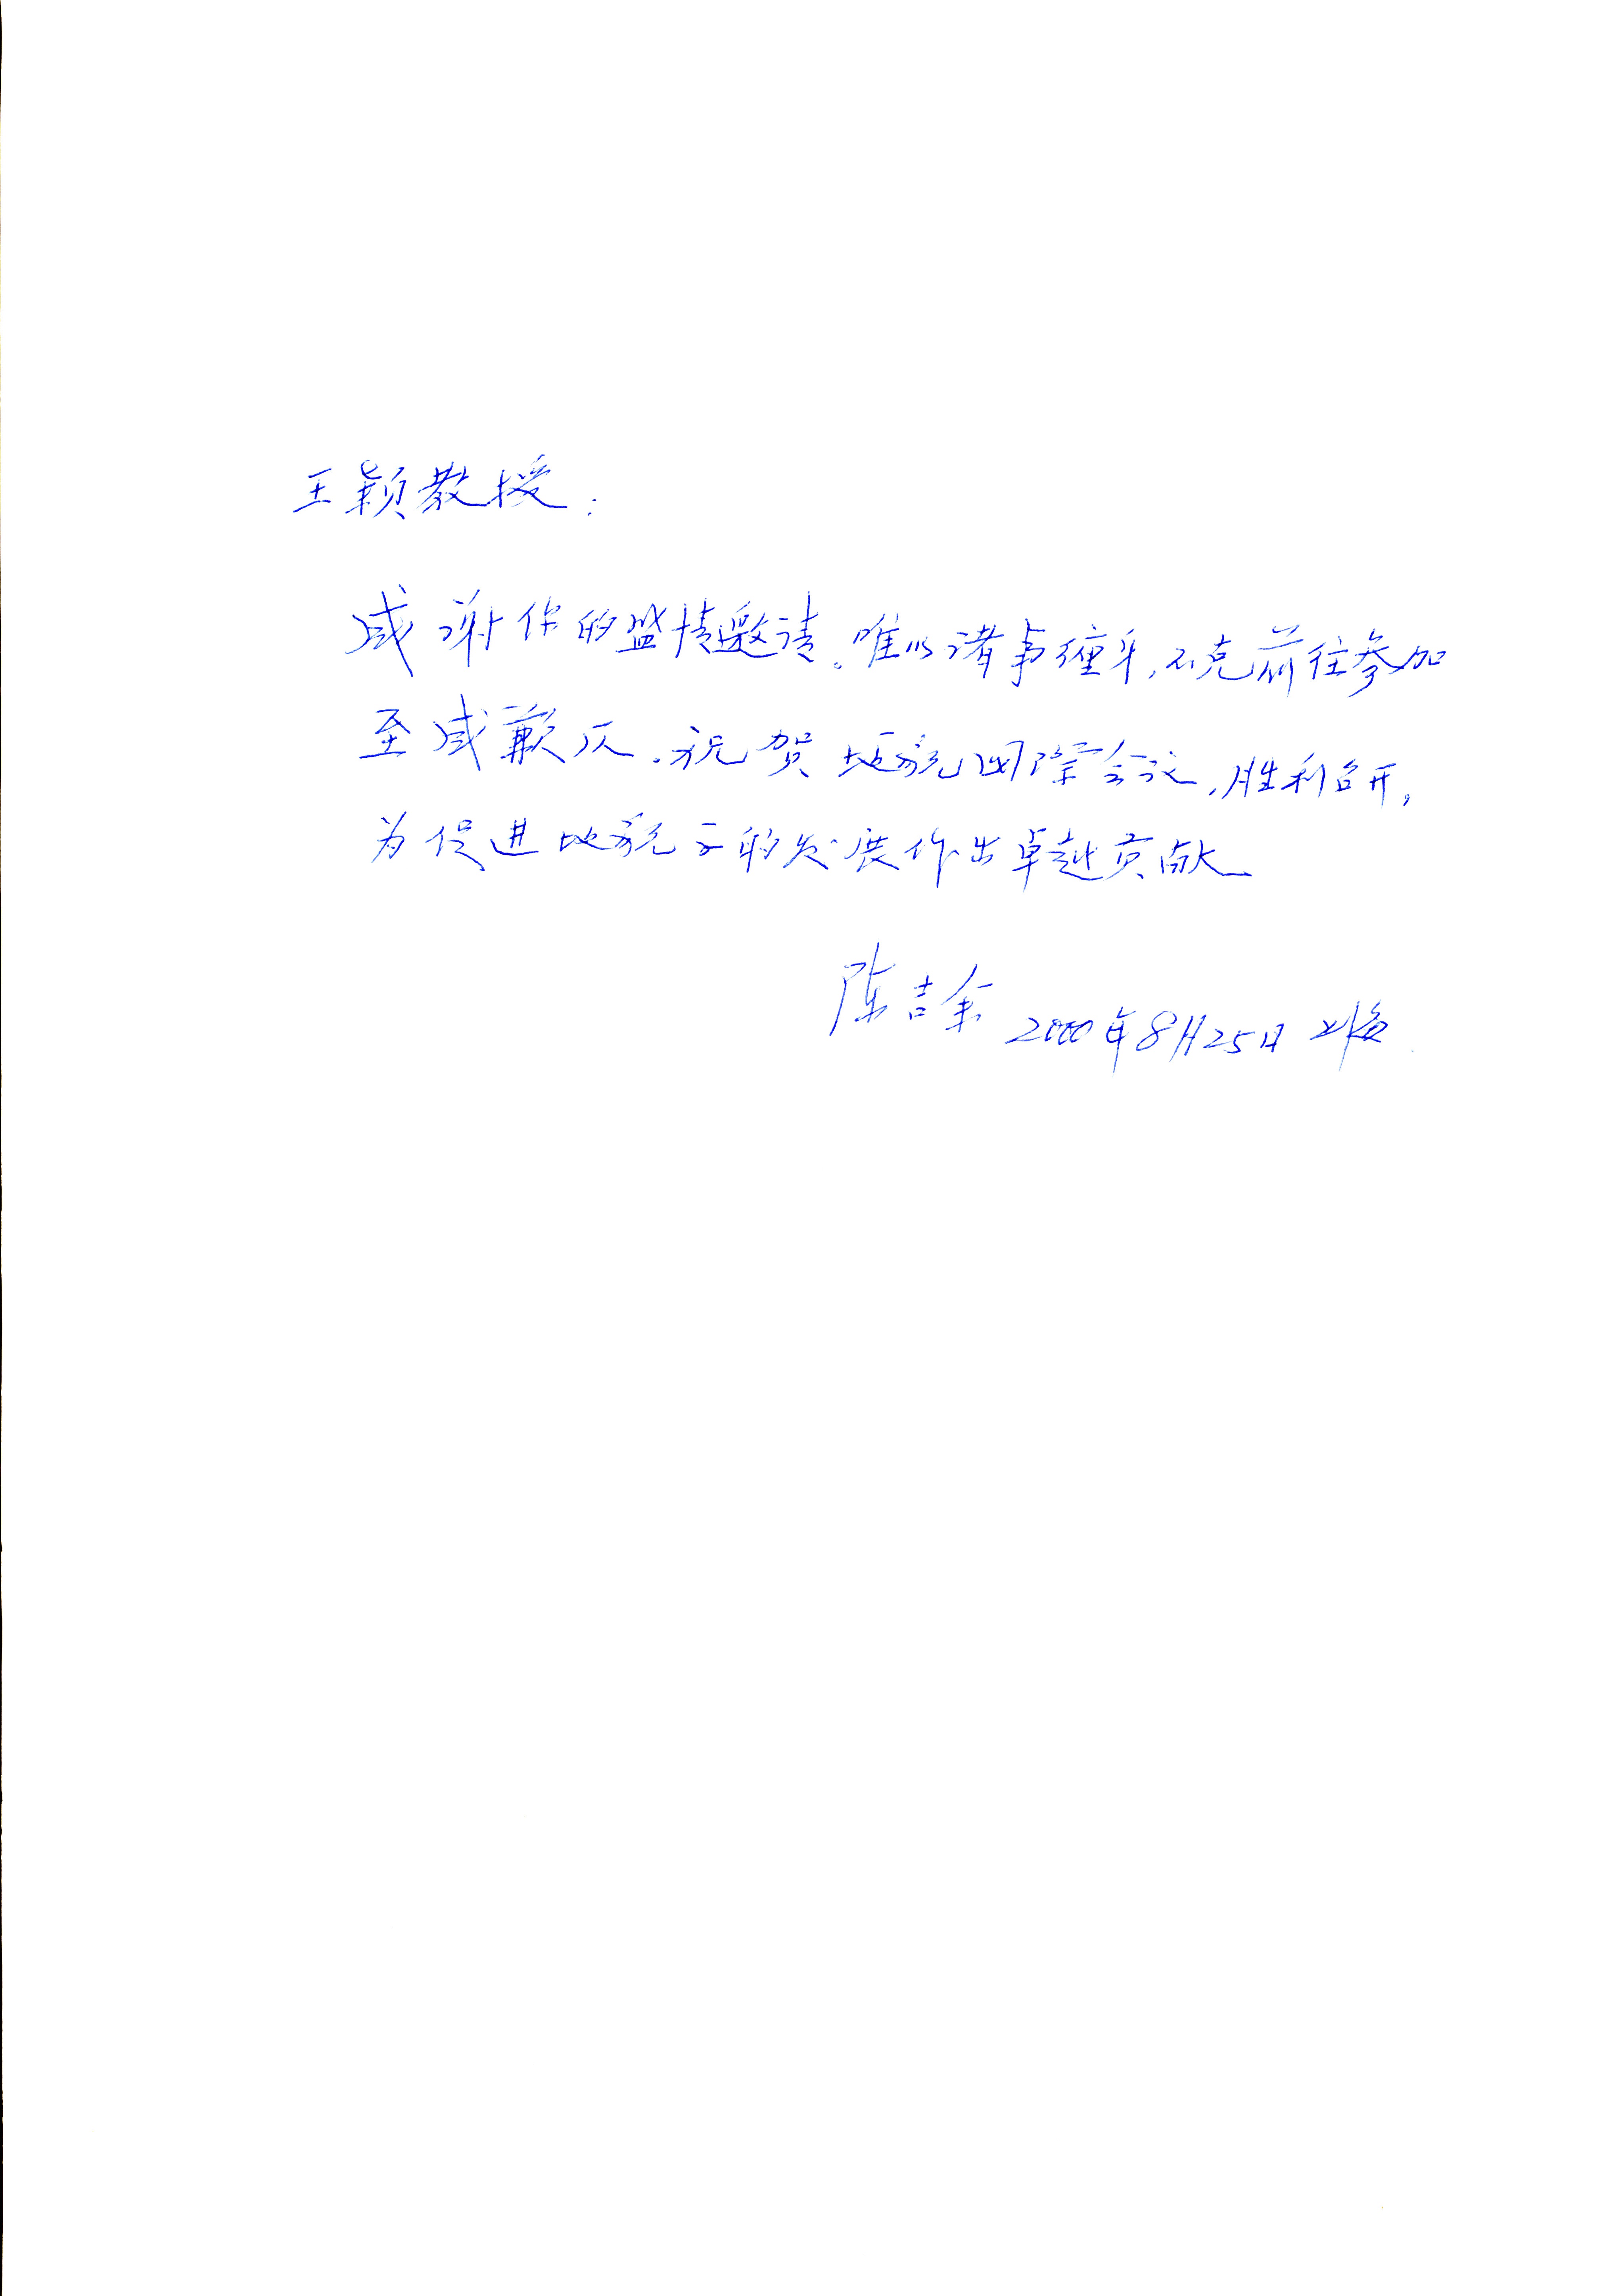 王颖教授：
感谢你的盛情邀请。唯以诸事缠身，不克前往参加
至感歉仄。祝贺地貌国际会议，胜利召开，
为促进地貌学的发展作出卓越贡献
陈吉余 2000年8月25日 上海